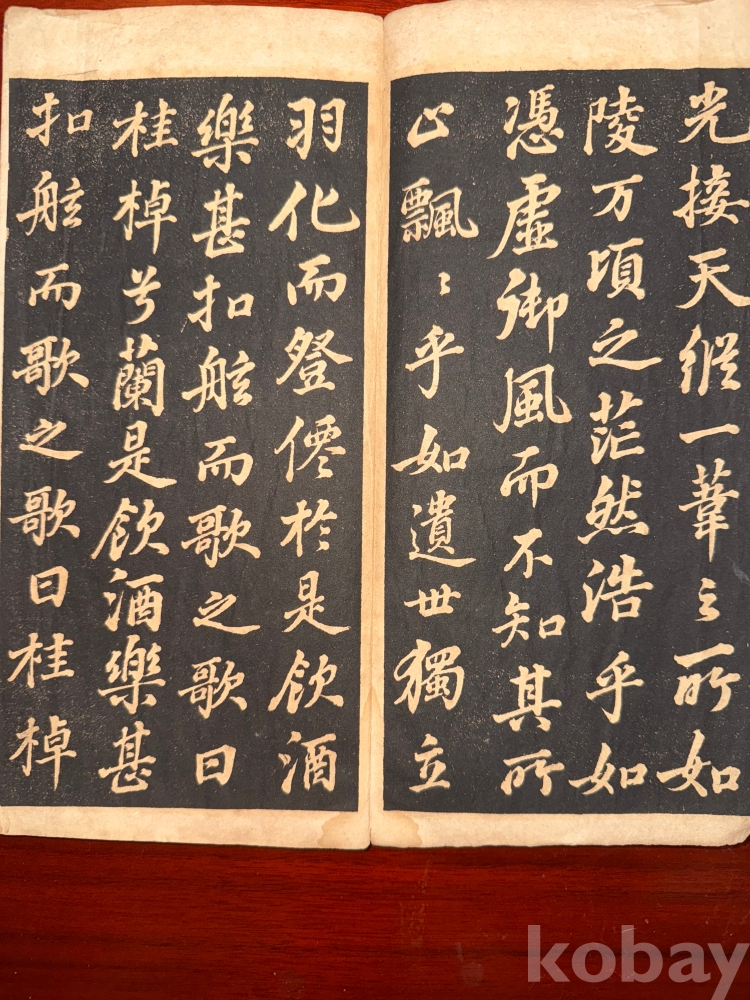 光接天縱一葦之所如
陵万頃之茫然浩乎如
馮虛御風而不知其所
止飄〻乎如遺世獨立
羽化而登僊於是飲酒
樂甚扣舷而歌之歌曰
桂棹兮蘭是飲酒樂甚
扣舷而歌之歌曰桂棹
kobay